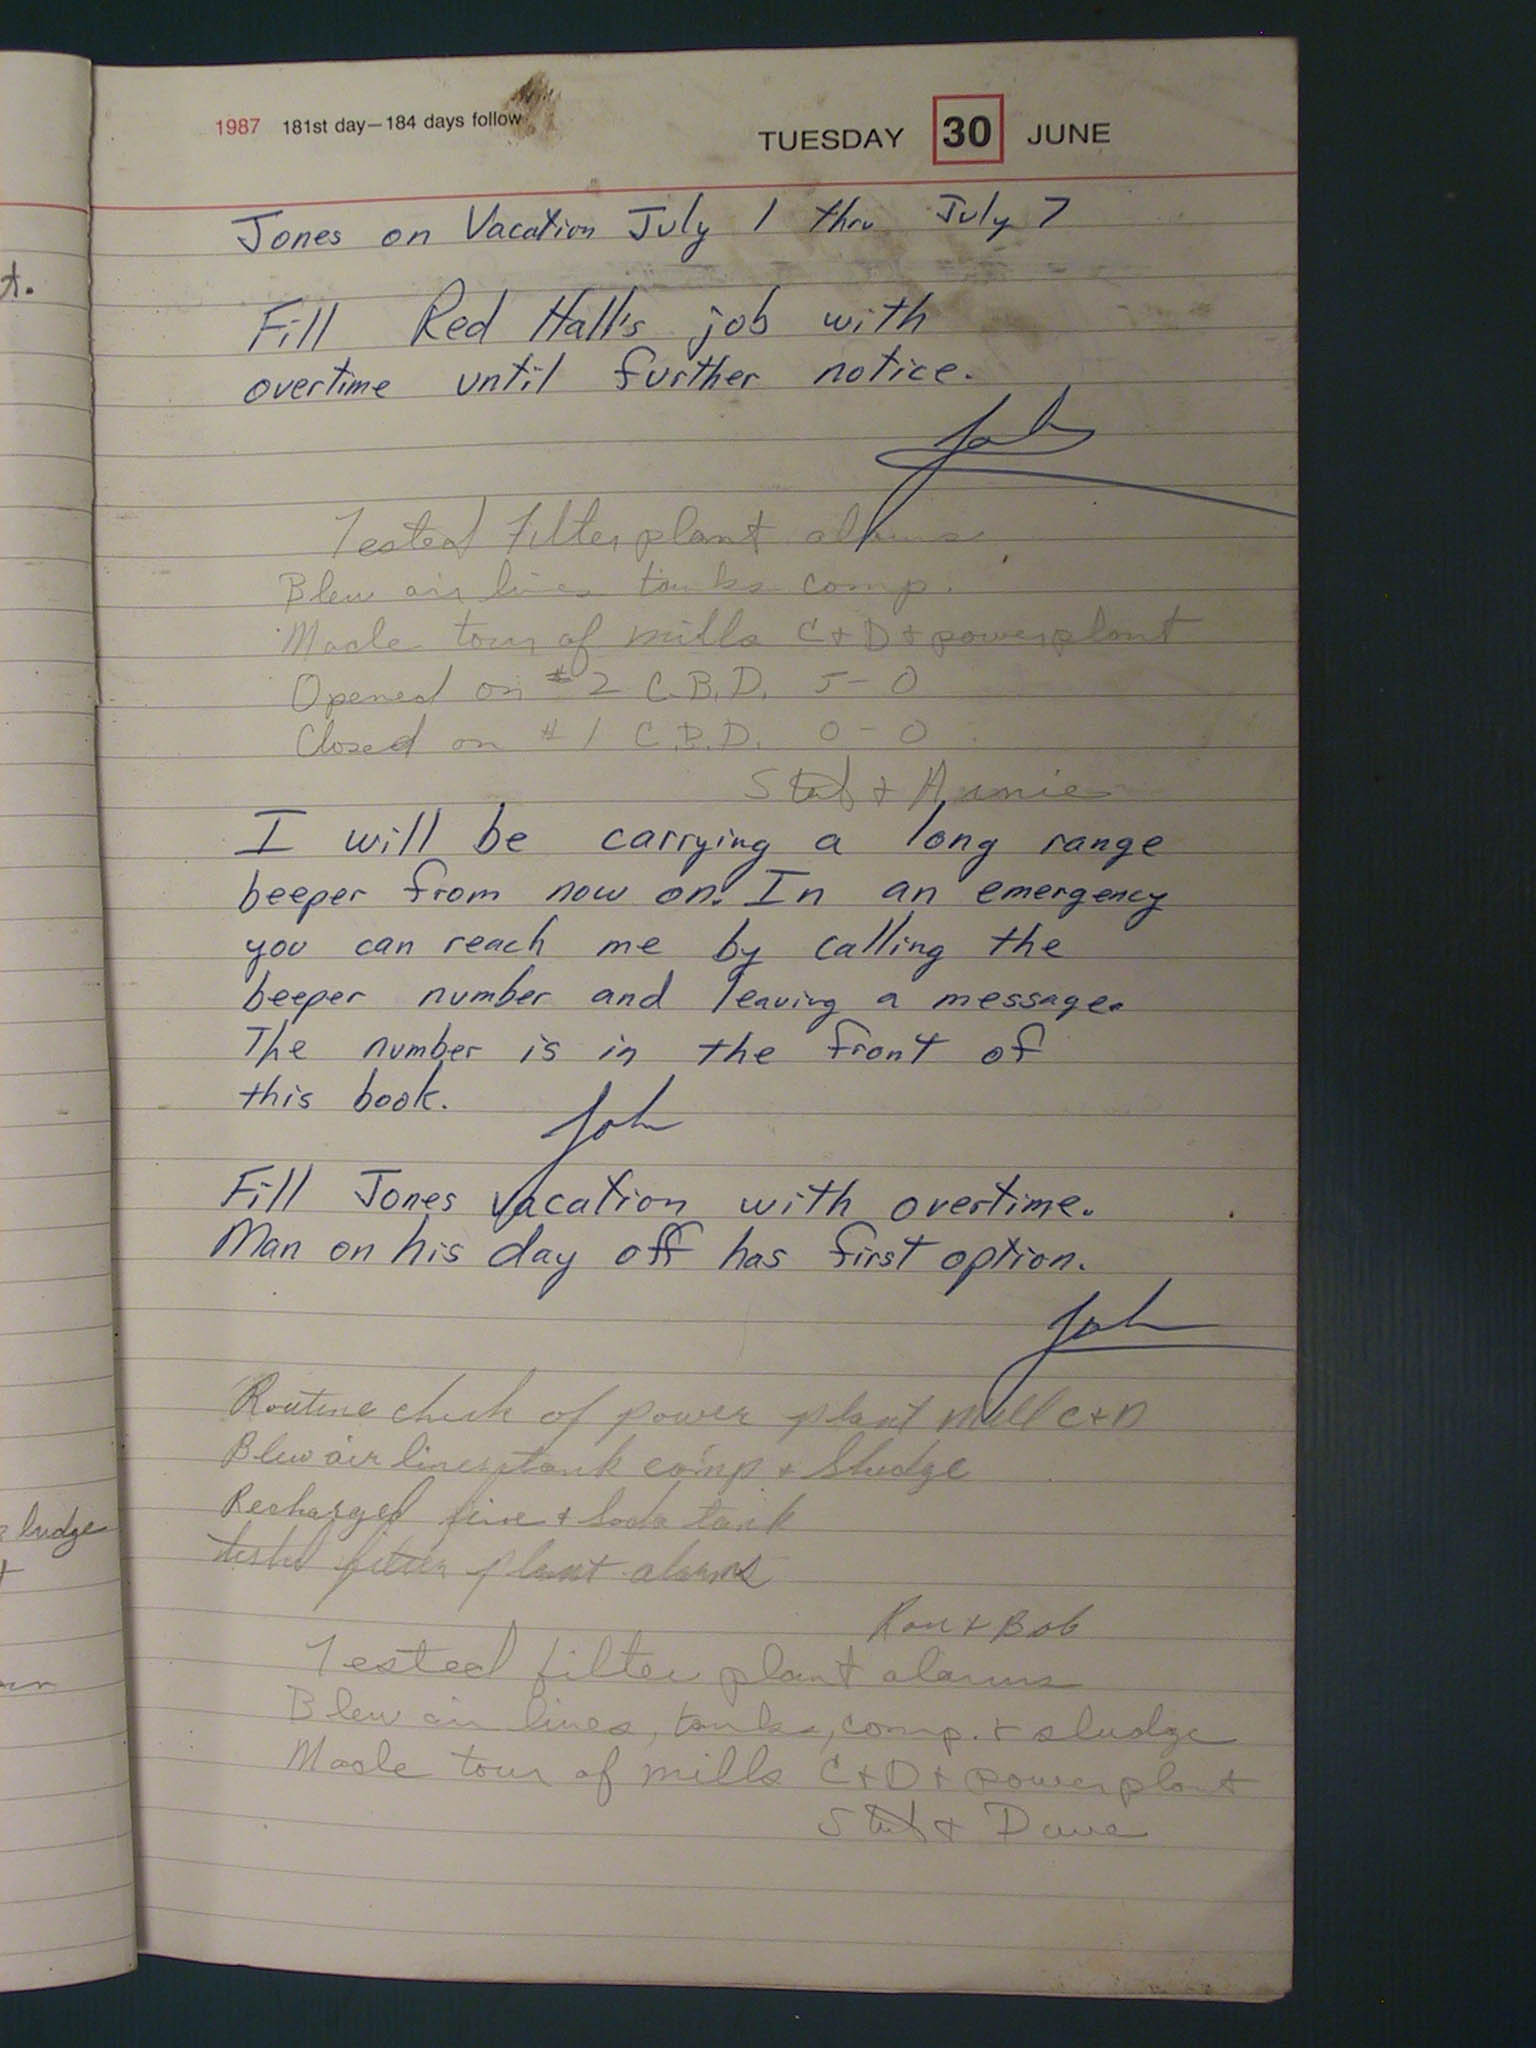 1987 181st day—184 days follow
TUESDAY 30 JUNE
Jones on Vacation July 1 thru July 7
t.
Fill Red Hall's job with
overtime until further notice.
John
Tested Filter plant alarms
Blew air lines tanks comp.
Made tour of mills C+D+powerplant
Opened on #2 C.B.D. 5-0
Closed on #1 C.B.D. 0-0
+ Arnie
I will be carrying a long range
beeper from now on. In an emergency
you can reach me by calling the
beeper number and leaving a message.
The number is in the front of
this book.
John
Fill Jones vacation with overtime.
Man on his day off has first option.
John
Routine check of power plant mill C+D
Blew air lines, tank comp + Sludge
Recharged + Soda tank
sludge
tested filter plant alarms
Ron + Bob
Tested filter plant alarms
Blew air lines, tanks, comp. + sludge
Made tour of mills C+D+powerplant
+ Dave